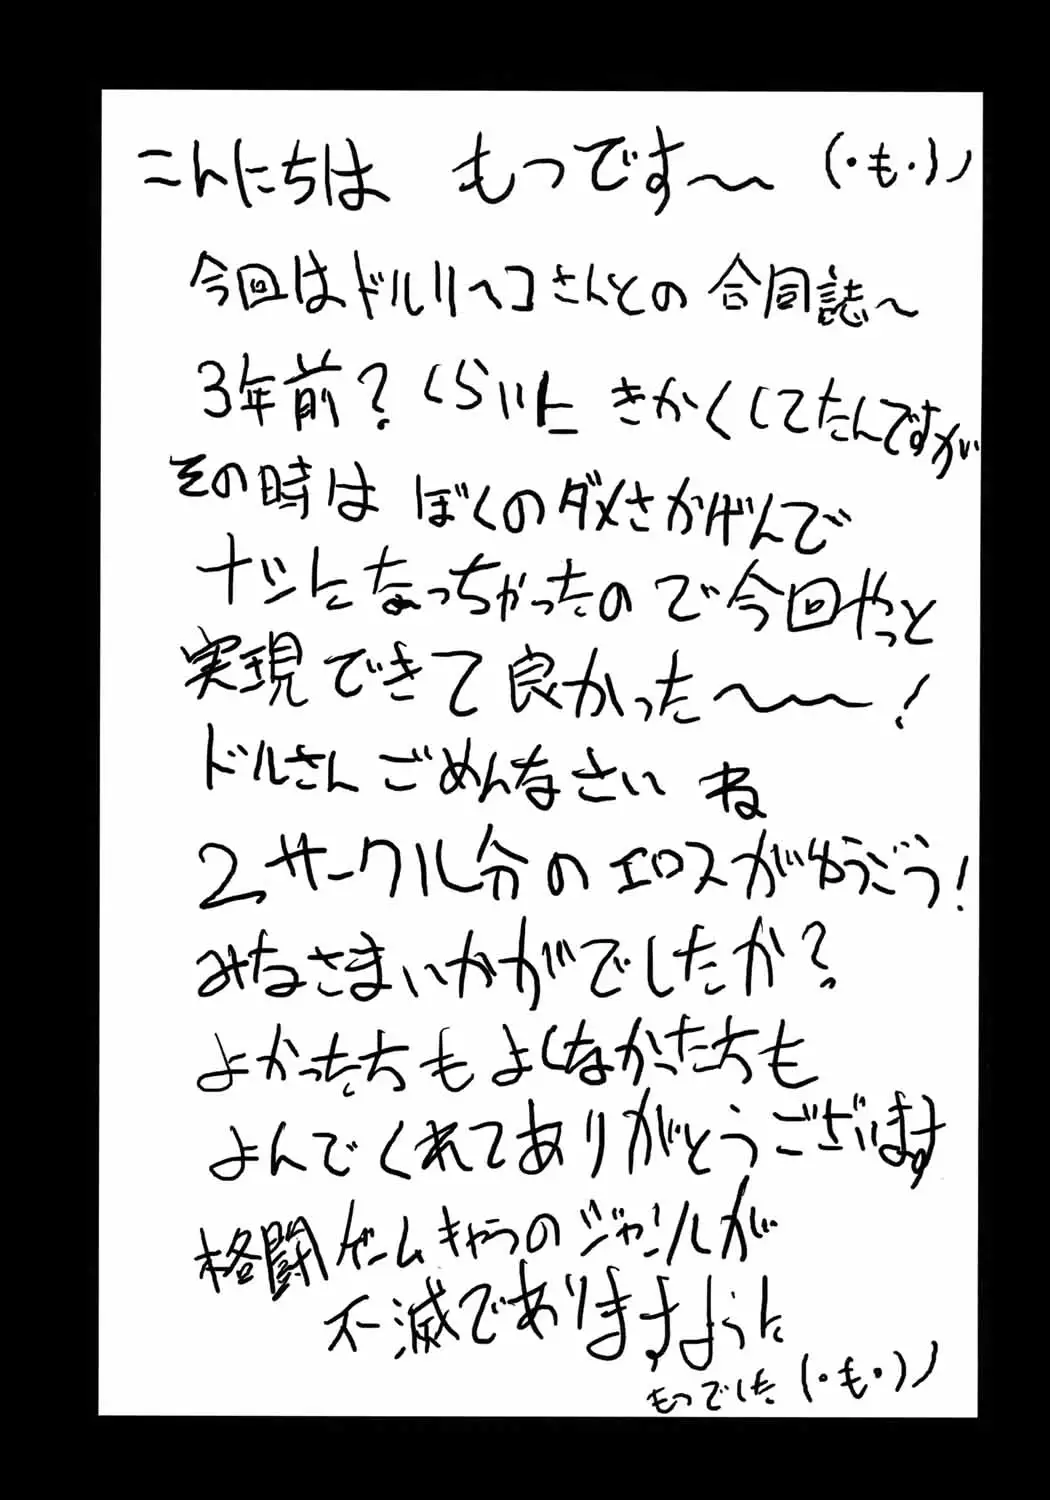 こんにちは もつです〜 (・も・)ノ
今回はドルリヘコさんとの合同誌〜
3年前?くらいに きかくしてたんですが
その時は ぼくのダメさかげんで
ナシになっちゃったので今回やっと
実現できて良かった〜〜!
ドルさん ごめんなさいね
2サークル分のエロスがゆうごう!
みなさまいかがでしたか?
よかったちも よくなかたたちも
よんでくれてありがとうございます
格闘ゲームキャラのジャンルが
不滅でありますように
もつでした (・も・)ノ